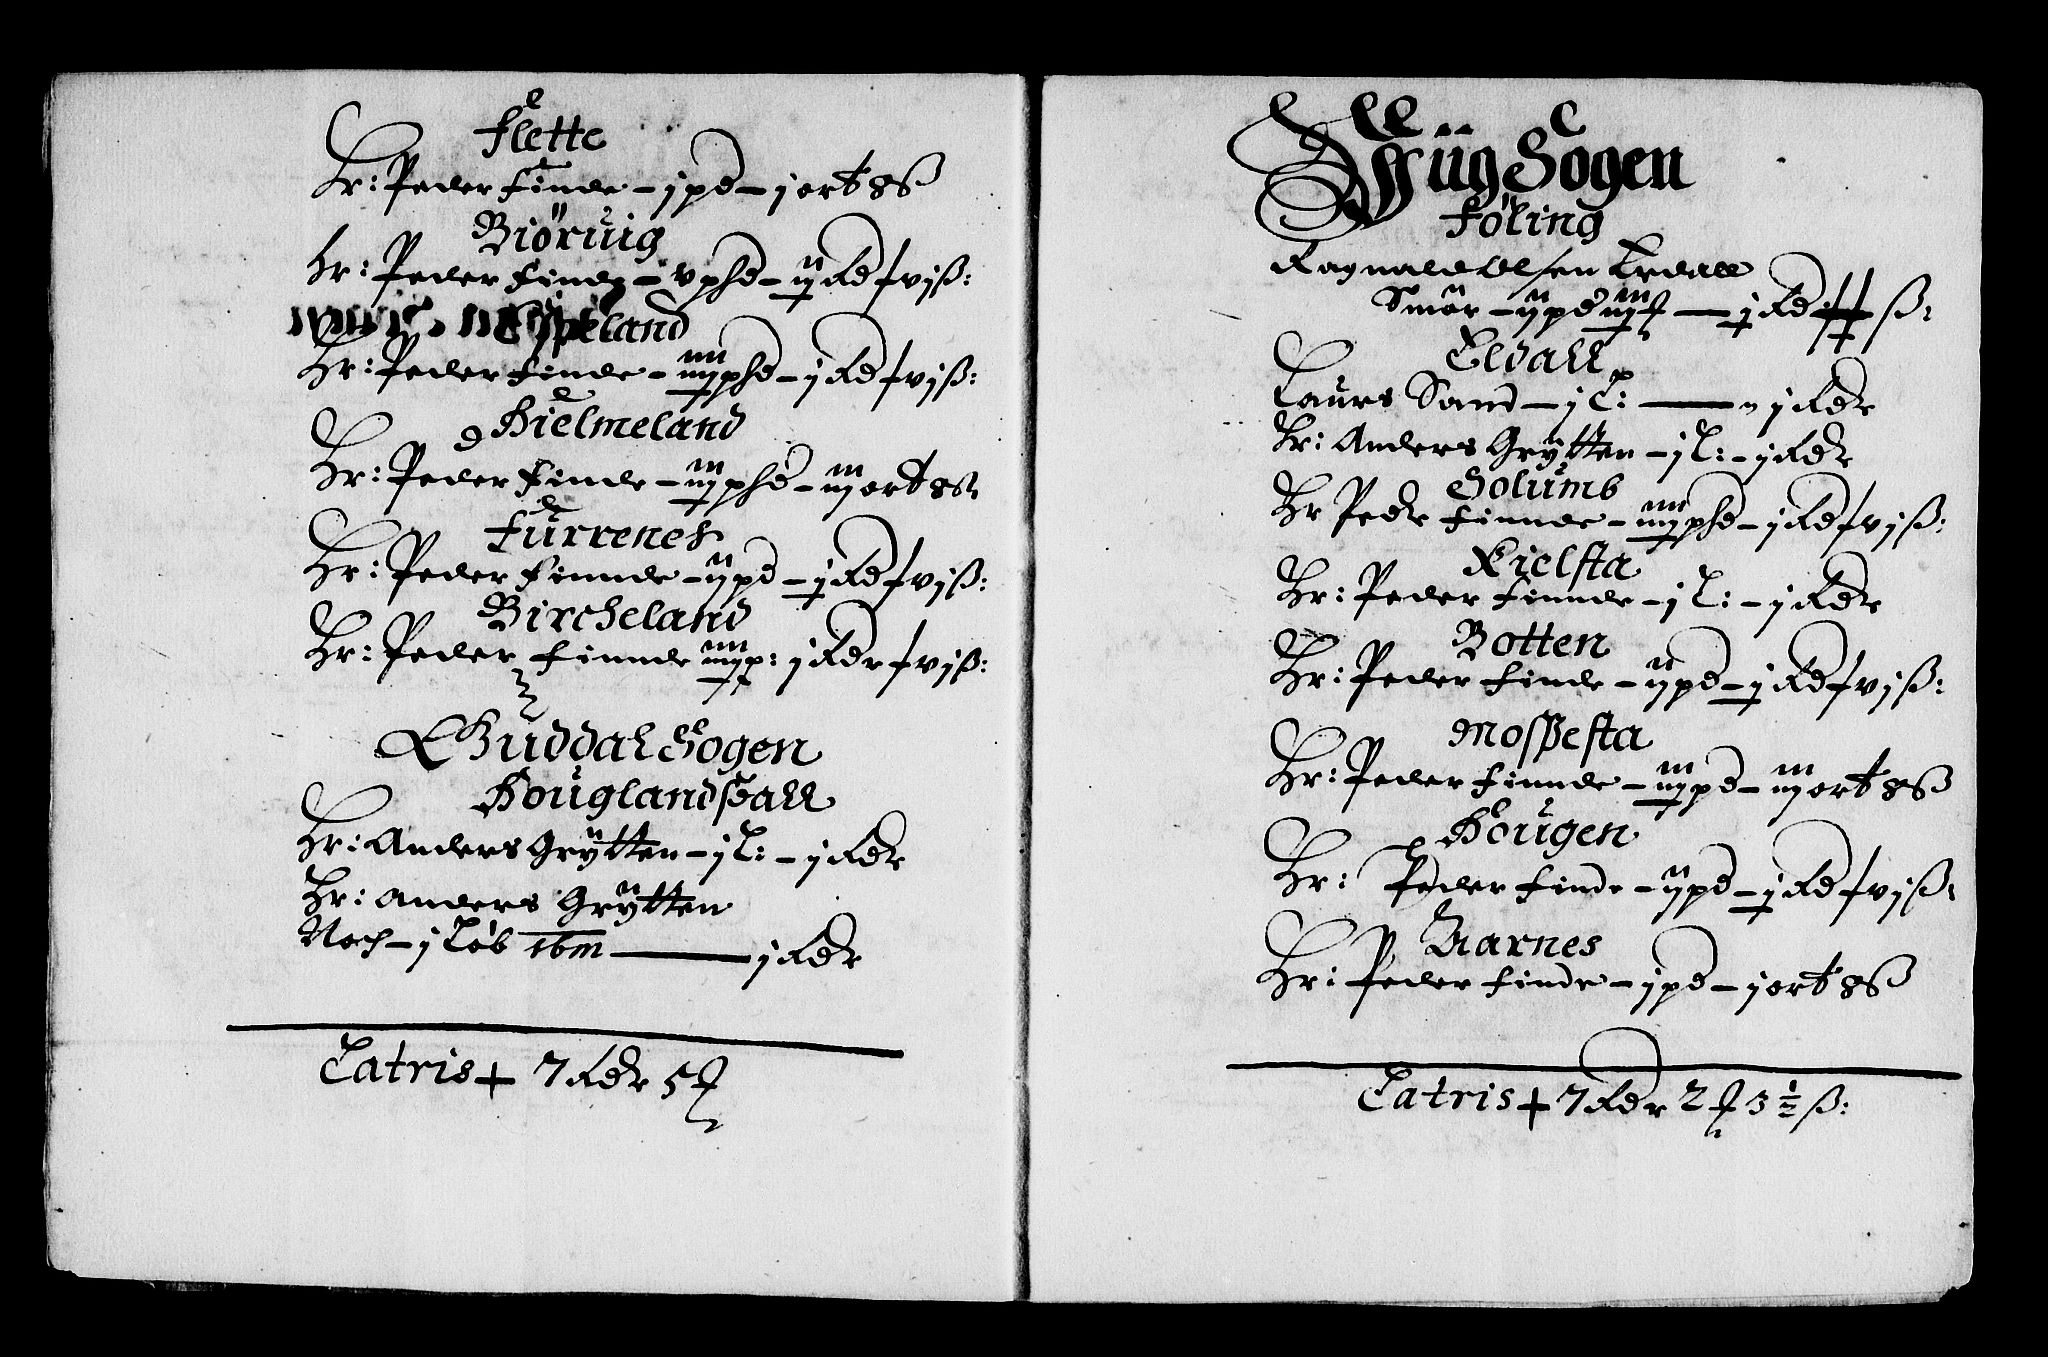 Flette
Hr: Peder Finde – j pd – j ort 8 ß
Biöruig
Hr: Peder Finde – v phd – ij Rd f vj ß:
Hr: Peder Finde – iiij phd – j Rd f vj ß:
Hielmeland
Hr: Peder Finde – iij phd – iij ort 8 ß
Furrenes
Hr: Peder Finnde – ij pd – j Rd f vj ß:
Bircheland
Hr: Peder Finnde iiij p: j Rdr f vj ß:
Guddal Sogen
Houglandsdall
Hr: Anders Grytten – j L: – j Rdr
Hr: Anders Grytten
Noch – j Löb 16m — j Rdr
Latris + 7 Rdr 5
Wiig Sogen
Föling
Ragnald Olsen Erdall
Smör – ij pd iij — j Rd ß:
Eldall
Laurs Sand – j L: — j Rdr
Hr: Anders Grytten – j L: – j Rdr
Solumb
Hr Pedr Finnde – iiij phd – j Rd f vj ß:
Kielsta
Hr: Peder Finnde – j L: – j Rdr
Botten
Hr: Peder Finde – ij pd – j Rd f vj ß:
Mosßesta
Hr: Peder Finnde – iij pd – iij ort 8 ß
Hougen
Hr: Peder Finde – ij pd – j Rd f vj ß:
Aarnes
Hr: Peder Finde – j pd – j ort 8 ß
Latris + 7 Rdr 2 3 ½ ß: